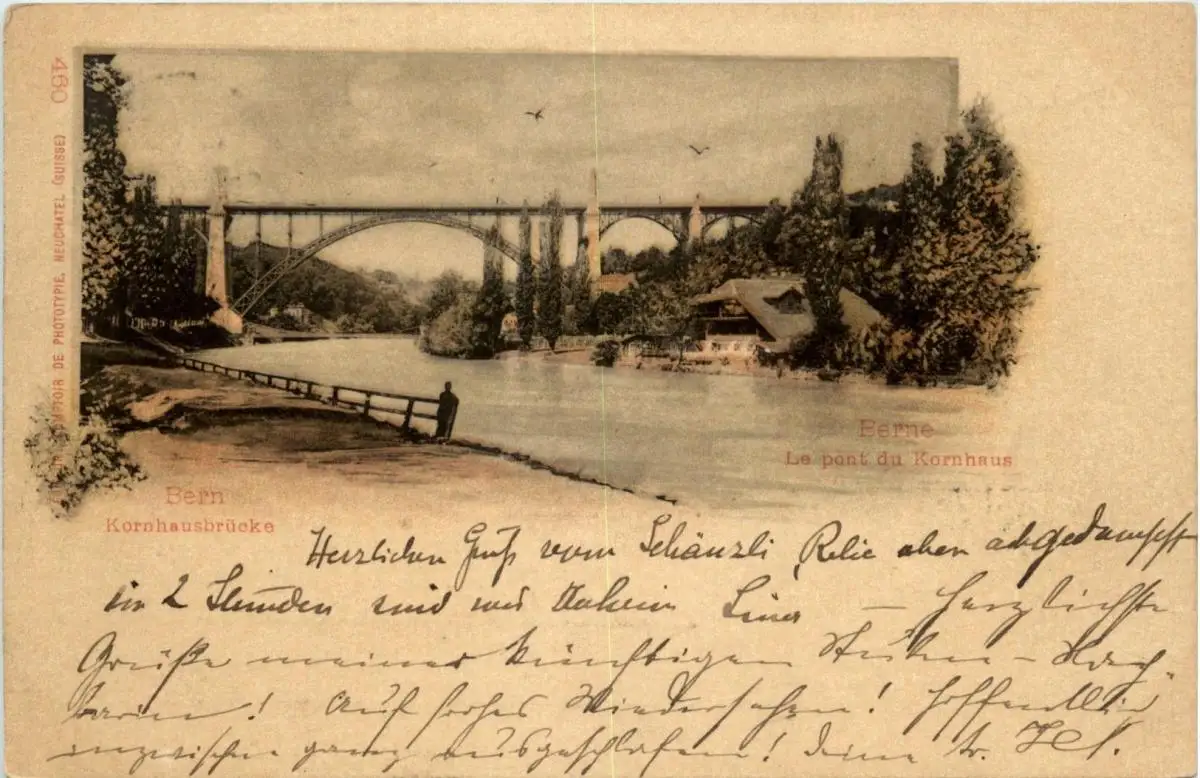 460
COMPTOIR DE PHOTOTYPIE, NEUCHATEL (SUISSE)
Berne
Le pont du Kornhaus
Bern
Kornhausbrücke
Herzlichen Gruß vom Schänzli, eben abgedampft
in 2 Stunden sind wir daheim — herzlichste
Grüße meiner künftigen Stuben-Nach-
barin! Auf frohes Wiedersehen! Hoffentlich
inzwischen ganz ausgeschlafen! Deine